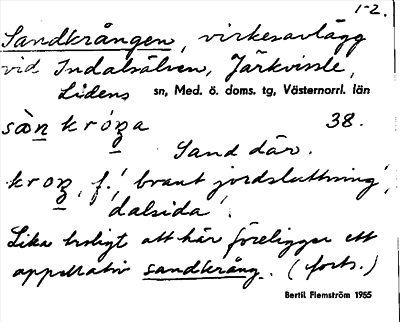 1-2.
Sandkrången, virkesavlägg
vid Indalsälven, Järkvissle,
Lidens sn, Med. ö. doms. tg, Västernorrl. län
sàn króŋa 38.
Sand där.
kroŋ, f., 'brant jordsluttning,
dalsida'.
Lika troligt att här föreligger ett
appellativ sandkrång. (forts.)
Bertil Flemström 1955